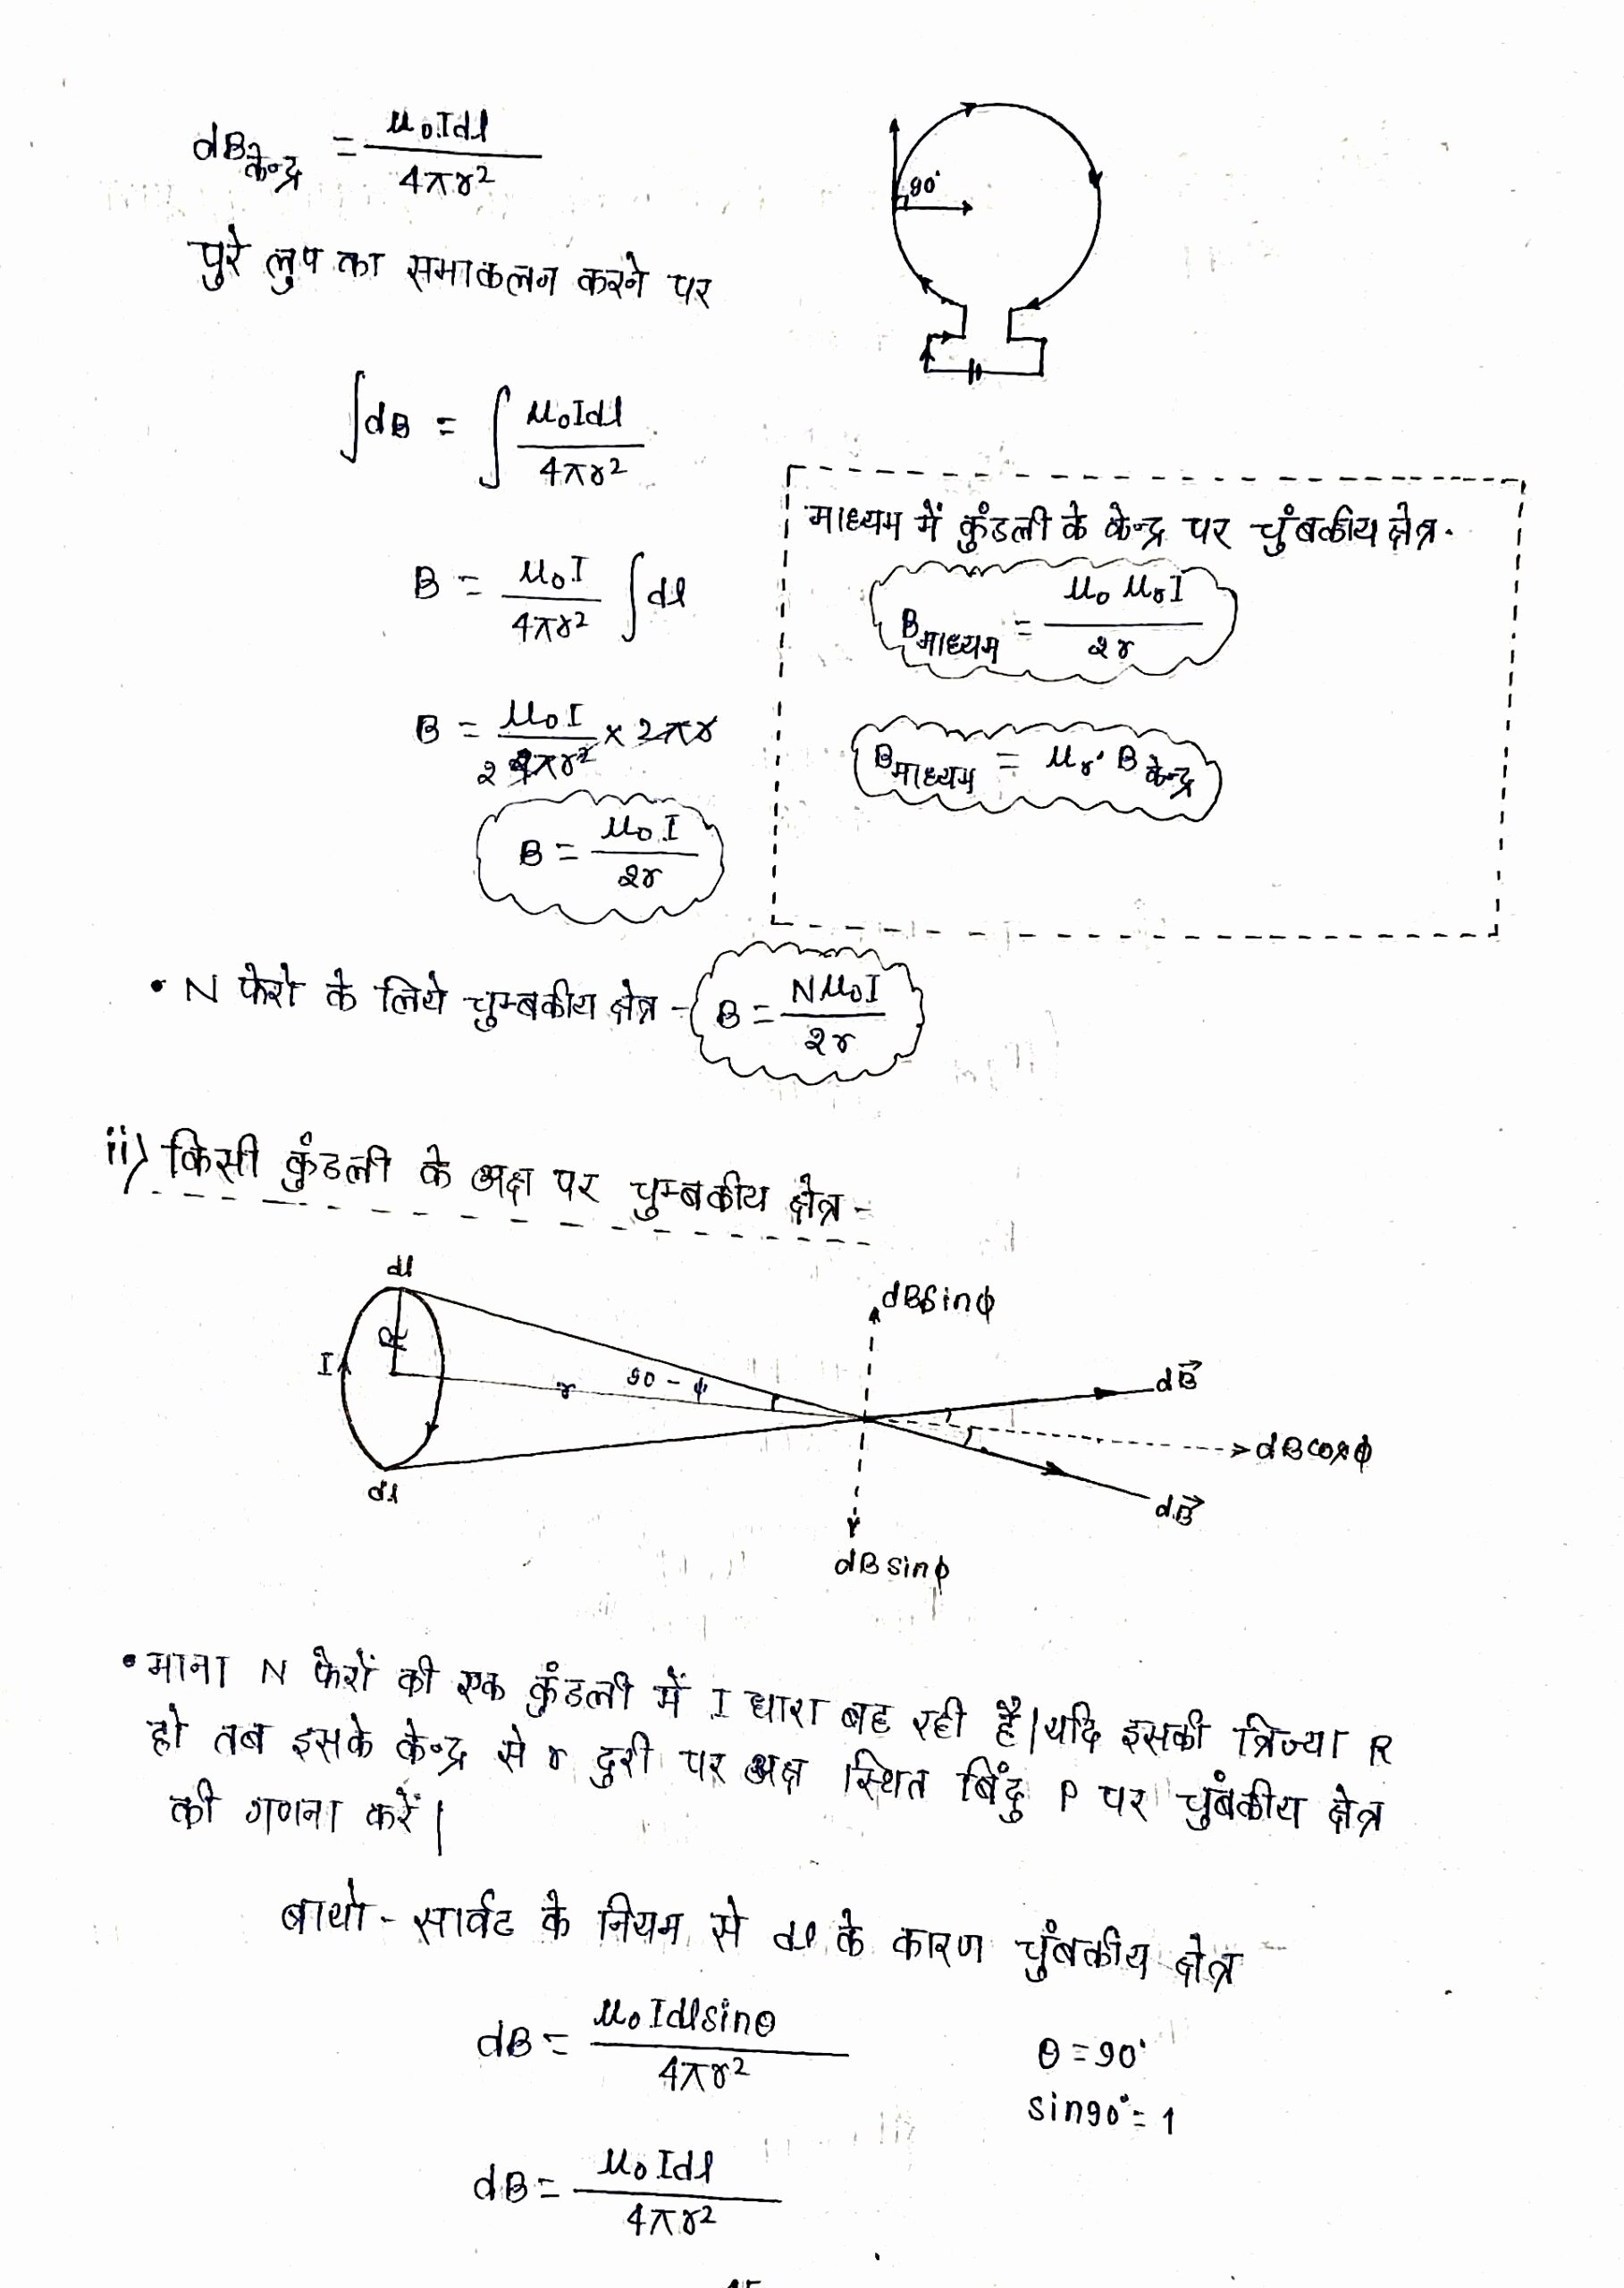 dBकेन्द्र = μ₀Idl / 4πr²
90°
पुरे लुप का समाकलन करने पर
∫dB = ∫ μ₀Idl / 4πr²
B = μ₀I / 4πr² ∫dl
B = μ₀I / 2 4πr² × 2πr
B = μ₀I / 2r
माध्यम में कुंडली के केन्द्र पर चुंबकीय क्षेत्र.
Bमाध्यम = μ₀ μr I / 2r
Bमाध्यम = μr. Bकेन्द्र
• N फेरो के लिये चुम्बकीय क्षेत्र - B = Nμ₀I / 2r
ii) किसी कुंडली के अक्ष पर चुम्बकीय क्षेत्र -
dl
R
I
r
90 - φ
dl
dBsinφ
dB⃗
dBcosφ
dB⃗
dBsinφ
• माना N फेरों की एक कुंडली में I धारा बह रही है|यदि इसकी त्रिज्या R
हो तब इसके केन्द्र से r दुरी पर अक्ष स्थित बिंदु P पर चुंबकीय क्षेत्र
की गणना करें|
बायो - सार्वट के नियम से dl के कारण चुंबकीय क्षेत्र
dB = μ₀Idlsinθ / 4πr²
θ = 90°
sin90° = 1
dB = μ₀Idl / 4πr²